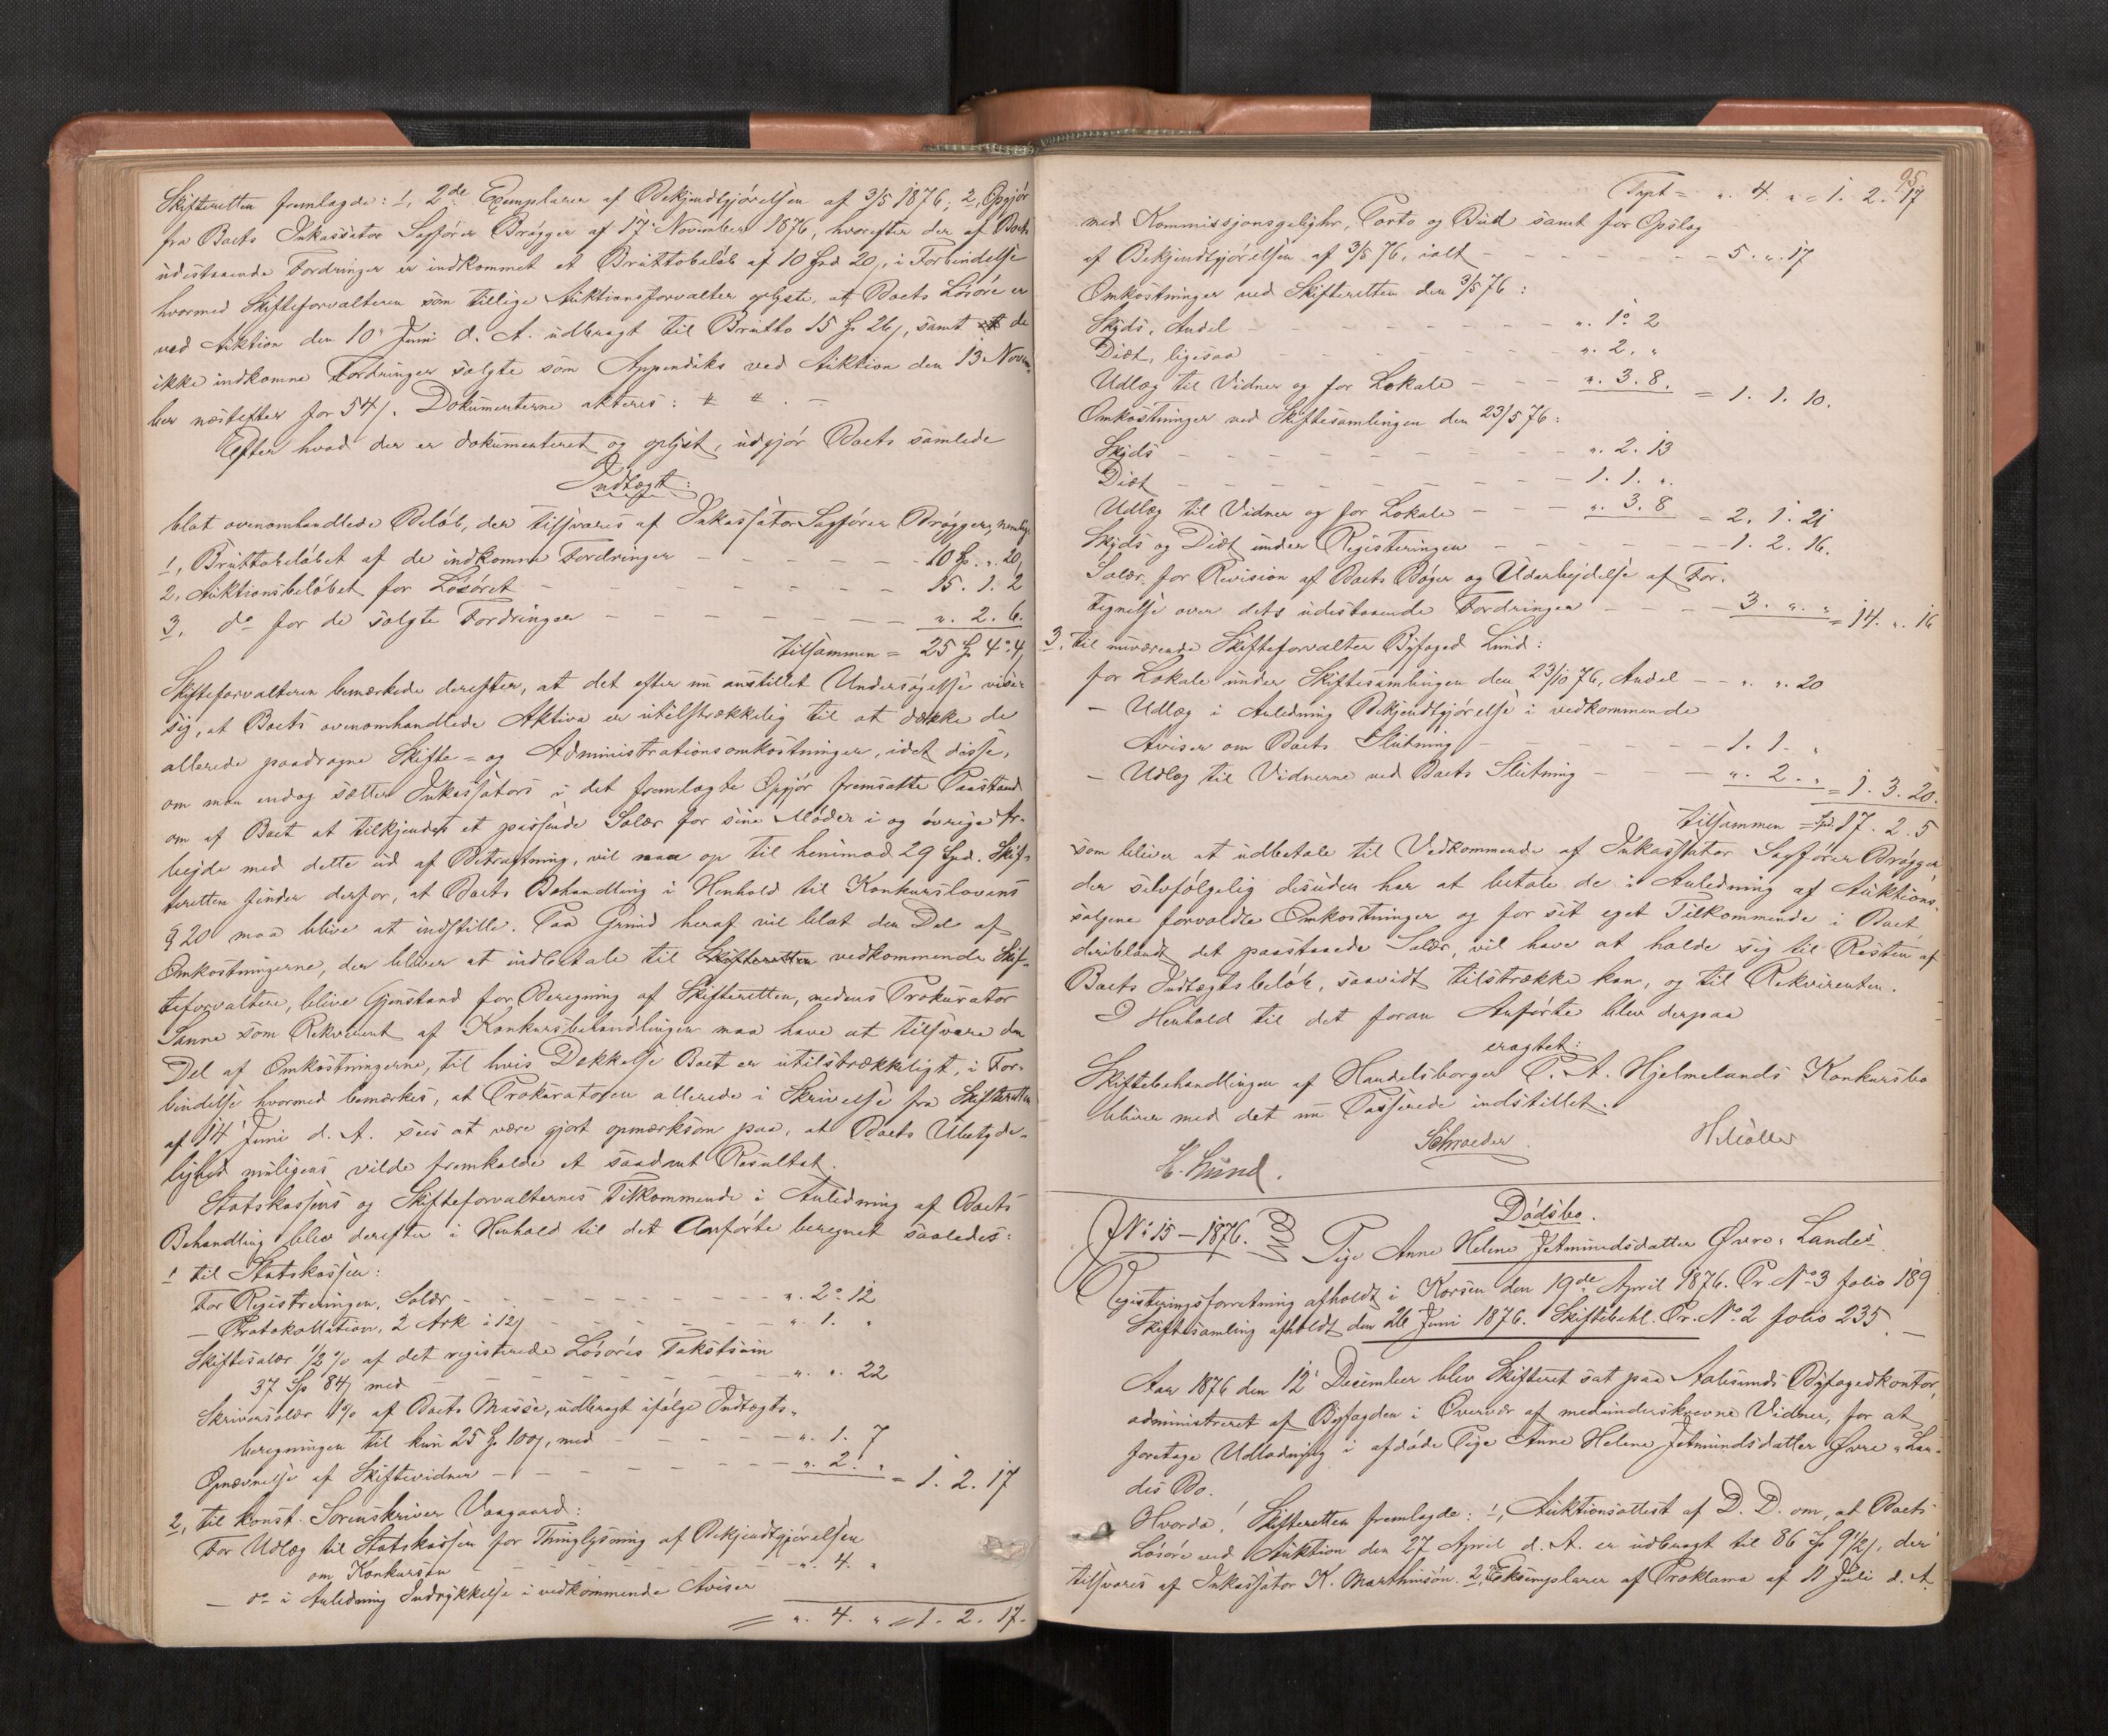 Skifteretten fremlagde: 1, 2de Exemplarer af Bekjendtgjörelsen af 3/5 1876; 2, Opgjör
fra Boets Inkassator Sagförer Brögger af 17' November 1876, hvorefter der af Boets
udestaaende Fordringer er indkommet et Bruttobelöb af 10 Spd 20 s, i Forbindelse
hvormed Skifteforvalteren som tillige Auktionsforvalter oplyste, at Boets Lösöre er
ved Auktion den 10' Juni d. A. udbragt til Brutto 15 Sp 26 s, samt de
ikke indkomne Fordringer solgte som Appendiks ved Auktion den 13 Novem-
ber næstefter for 54 s. Dokumenterne akteres: # # . –
Efter hvad der er dokumenteret og oplyst, udgjör Boets samlede
Indtægt:
blot ovenomhandlede Belöb, der tilsvares af Inkassator Sagförer Brögger, nemlig:
1, Bruttobelöbet af de indkomne Fordringer – – – – – 10 Sp. „. 20,
2, Auktionsbelöbet for Lösöret – – – – – – 15. 1. 2
3, do for de solgte Fordringer – – – – – – „. 2. 6.
tilsammen = 25 Sp 4 o. 4,
Skifteforvalteren bemærkede derefter, at det efter nu anstillet Undersögelse viser
sig, at Boets ovenomhandlede Aktiva er utilstrækkelig til at dække de
allerede paadragne Skifte- og Administrationsomkostninger, idet disse,
om man endog sætter Inkassators i det fremlagte Opgjör fremsatte Paastand
om af Boet at tilkjendes et passende Salær for sine Möder i og övrige Ar-
beide med dette ud af Betragtning, vil naa op til henimod 29 Spd. Skif-
teretten finder derfor, at Boets Behandling i Henhold til Konkurslovens
§ 20 maa blive at indstille. Paa Grund heraf vil blot den Del af
Omkostningerne, der bliver at indbetale til Skifteretten vedkommende Skif-
teforvaltere, blive Gjenstand for Beregning af Skifteretten, medens Prokurator
Sanne som Rekvirent af Konkursbehandlingen maa have at tilsvare den
Del af Omkostningerne, til hvis Dækkelse Boet er utilstrækkeligt, i For-
bindelse hvormed bemærkes, at Prokuratoren allerede i Skrivelse fra Skifteretten
af 14 Juni d. A. sees at være gjort opmærksom paa, at Boets Ubetyde-
lighed muligens vilde fremkalde et saadant Resultat.
Statskassens og Skifteforvalternes Tilkommende i Anledning af Boets
Behandling blev derefter i Henhold til det Anförte beregnet saaledes:
1 til Statskassen:
For Registreringen, Salær – – – – – „. 2 o. 12
– Protokollation, 2 Ark à 12 s – – – – „. 1. „
Skiftesalær 1/2 % af det registrerede Lösöres Takstsum
37 Sp 84 s med – – – – – „. „. 22
Skriversalær 4% af Boets Masse, udbragt ifölge Indtægts-
beregningen til kun 25 Sp 100 s, med – – – – „. 1. 7
Opnævnelse af Skiftevidner – – – – – „. 2. „ = 1. 2. 17
2, til konst. Sorenskriver Vaagaard:
For Udlæg til Statskassen for Thinglysning af Bekjendtgjörelsen
om Konkursen – – – – „. 4. „
– do i Anledning Indrykkelse i vedkommende Aviser
= „. 4. „ = 1. 2. 17.
95
Trpt = „. 4. „ = 1. 2. 17
med Kommissjonsgebyhr, Porto og Bud samt for Opslag
af Bekjendtgjörelsen af 3/5 76, ialt – – – – 5. „. 17
Omkostninger ved Skifteretten den 3/5 76:
Skyds, Andel – – – – – „. 1 o. 2
Diæt, ligesaa – – – – – „. 2. „
Udlæg til Vidner og for Lokale – – – „. 3. 8. = 1. 1. 10.
Omkostninger ved Skiftesamlingen den 23/5 76:
Skyds – – – – – – „. 2. 13
Diæt – – – – – – 1. 1. „.
Udlæg til Vidner og for Lokale – – – „. 3. 8 = 2. 1. 21
Skyds og Diæt under Registeringen – – – – 1. 2. 16.
Salær for Revision af Boets Böger og Udarbejdelse af For-
tegnelse over dets udestaaende Fordringer – – – – 3. „. „ = 14. „. 16
3, til nuværende Skifteforvalter Byfoged Lund:
for Lokale under Skiftesamlingen den 23/10 76, Andel – – „. „. 20
– Udlæg i Anledning Bekjendtgjörelse i vedkommende
Aviser om Boets Slutning – – – – – 1. 1. „
– Udlæg til Vidnerne ved Boets Slutning – – – „. 2. „ = 1. 3. 20.
tilsammen = Spd. 17. 2. 5
som bliver at udbetale til Vedkommende af Inkassator Sagförer Brögger
der selvfölgelig desuden har at betale de i Anledning af Auktions-
salgene forvoldte Omkostninger og for sit eget Tilkommende i Boet,
deriblandt det paastaaede Salær, vil have at holde sig til Resten af
Boets Indtægtsbelöb, saavidt tilstrække kan, og til Rekvirenten.
I Henhold til det foran Anförte blev derpaa
eragtet:
Skiftebehandlingen af Handelsborger P. A. Hjelmelands Konkursbo
bliver med det nu Passerede indstillet.
Schroeder. H Möller
E. Lund.
Dödsbo.
No 15 – 1876. Pige Anne Helene Jetmundsdatter Övre-Landes
Registeringsforretning afholdt i Korsen den 19de April 1876. Pr. No 3 folio 189
Skiftesamling afholdt den 26 Juni 1876. Skiftebehl. Pr. No. 2 folio 235. –
Aar 1876 den 12' December blev Skifteret sat paa Aalesunds Byfogedkontor,
administreret af Byfogden i Overvær af medunderskrevne Vidner, for at
foretage Udlodning i afdöde Pige Anne Helene Jetmundsdatter Övre-Lan-
des Bo.
Hvorda! Skifteretten fremlagde: 1, Auktionsattest af D. D. om, at Boets
Lösöre ved Auktion den 27 April d. A. er udbragt til 86 Sp 9 1/2 s, der
tilsvares af Inkassator K. Marthinson. 2, Eksemplarer af Proklama af 11 Juli d. A.